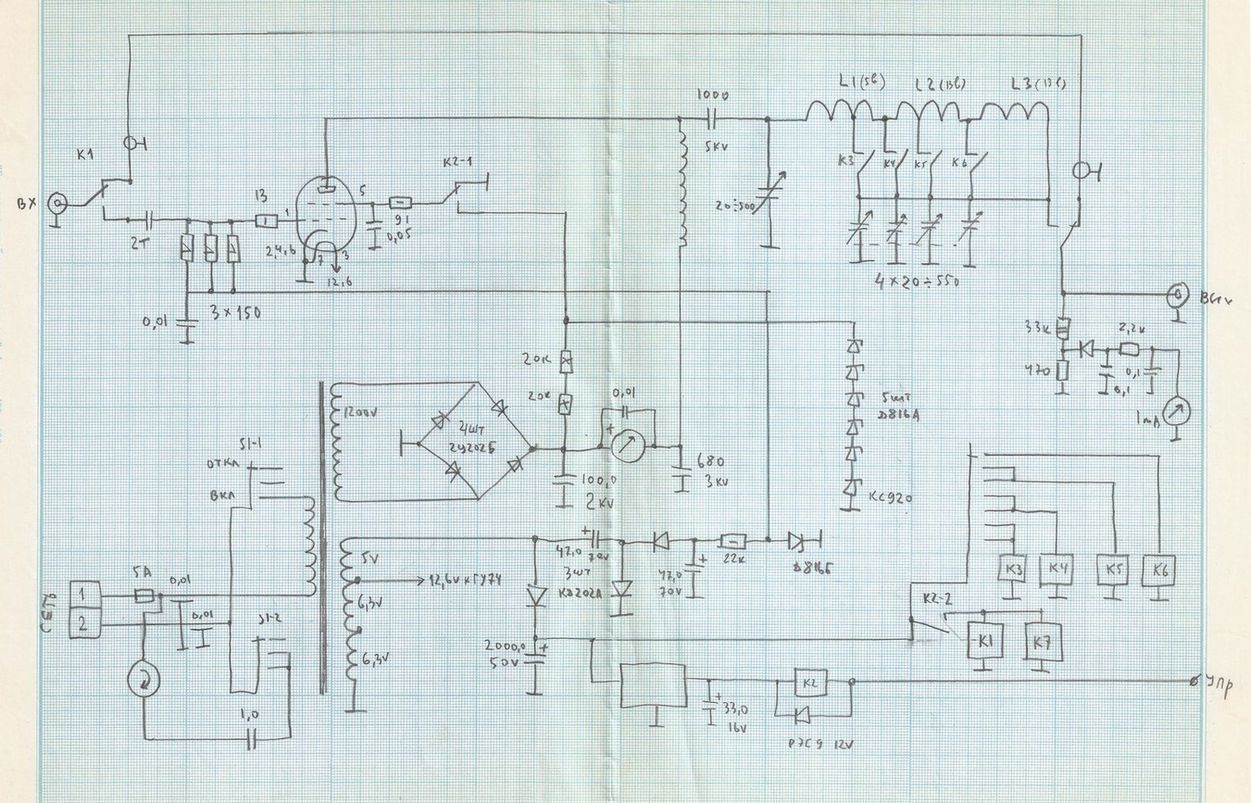 L1(5В) L2(13В) L3(13В)
1000
5KV
K1
K2-1
K3 K4 K5 K6
ВХ
13
1
5
91
0,05
2Т
2,4,6
7
3
12,6
20÷500
4×20÷550
0,01
3×150
33к
2,2к
470
0,1
0,1
1mA
20к
20к
0,01
1200V
4шт
2Ц202Б
+
5шт
D816A
100,0
2KV
680
3KV
КС920
S1-1
ОТКЛ
ВКЛ
+
47,0
70V
5V
12,6V к ГУ74
3шт
КД202А
+
47,0
70V
22к
D816Б
K3
K4
K5
K6
5А
0,01
0,01
1
2
6,3V
6,3V
S1-2
K2-2
K1
K7
2000,0
50V
+
+
33,0
16V
K2
Упр
1,0
РЭС9 12V